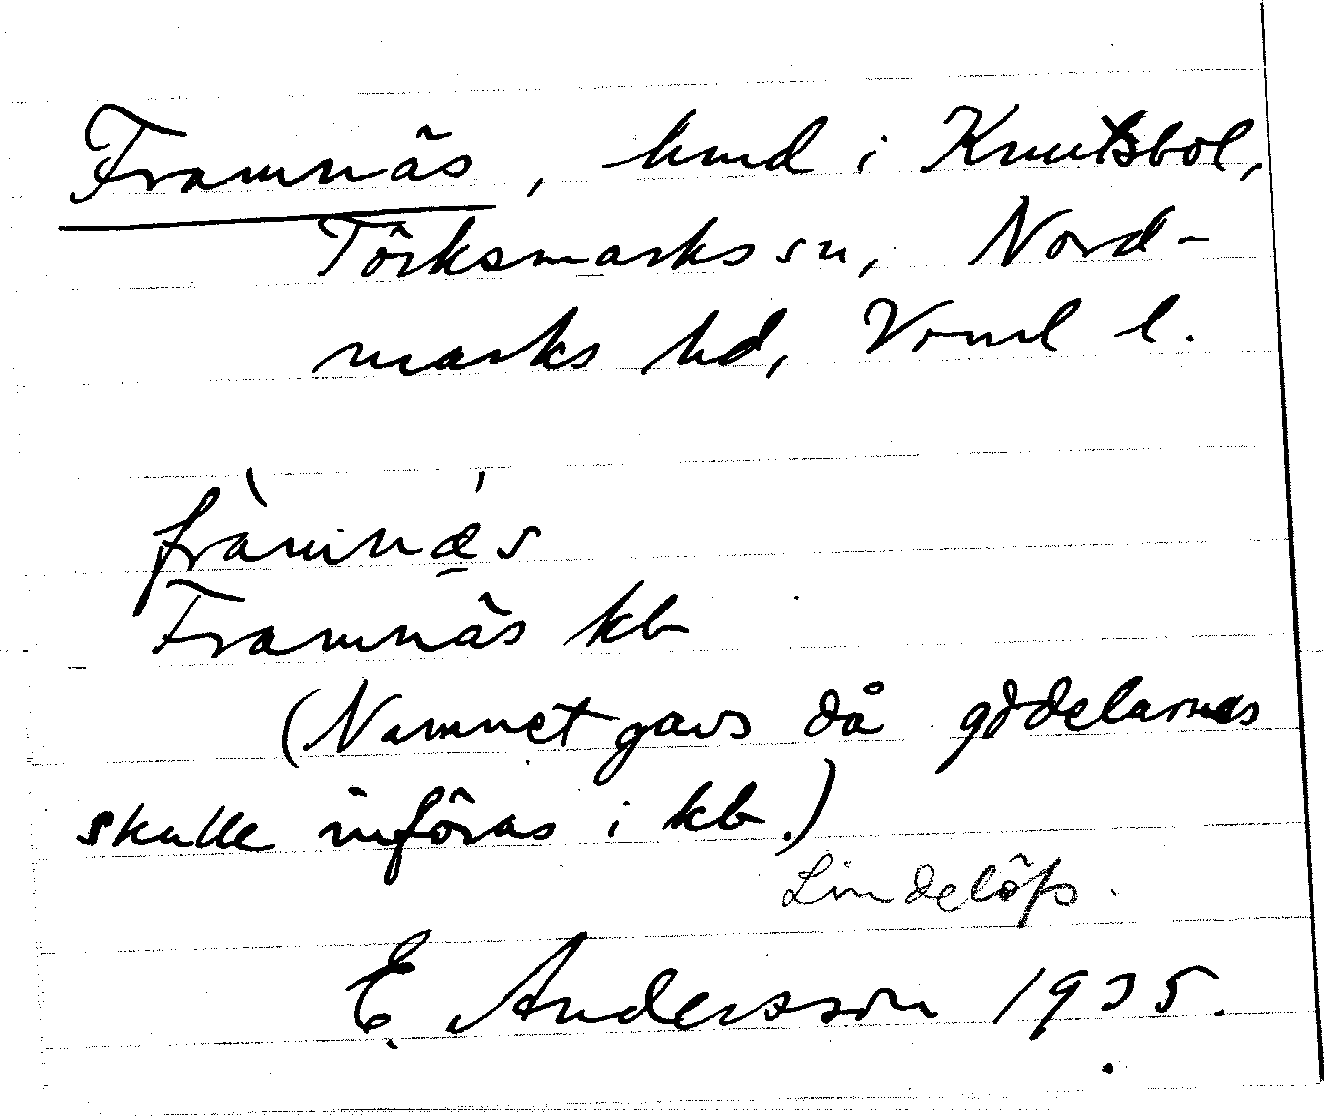 Framnäs, hmd i Knutsbol,
Törksmarks sn, Nord-
marks hd, Vrml l.
fràmnǽs
Framnäs kb
(Namnet gavs då gddelarnas
skulle införas i kb.)
Lindelöfs.
E. Andersson 1935.